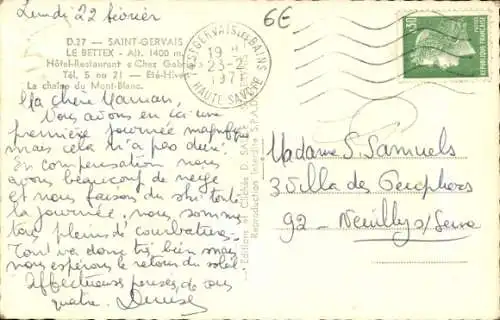 Lundi 22 février
6€
D.27 - SAINT-GERVAIS
LE BETTEX - Alt. 1400 m.
Hôtel-Restaurant « Chez Gabriel
Tél. 5 ou 21 - Eté-Hiver
La chaîne du Mont-Blanc.
ST GERVAIS LES BAINS
19 H
23-2
1971
HAUTE SAVOIE
0,30
REPUBLIQUE FRANÇAISE
Ma chère Maman,
Nous avons eu ici une
première journée magnifique
mais cela n'a pas duré.
En compensation nous
avons beaucoup de neige
et nous faisons du ski toute
la journée, nous sommes
tous pleins d'courbatures.
Tout va donc très bien mais
nous espérons le retour du soleil.
Affectueuses pensées de nous
quatre. Denise
Editions et Clichés D.
Reproduction Interdite
Madame S. Samuels
3 Villa des
92 - Neuilly s/ Seine